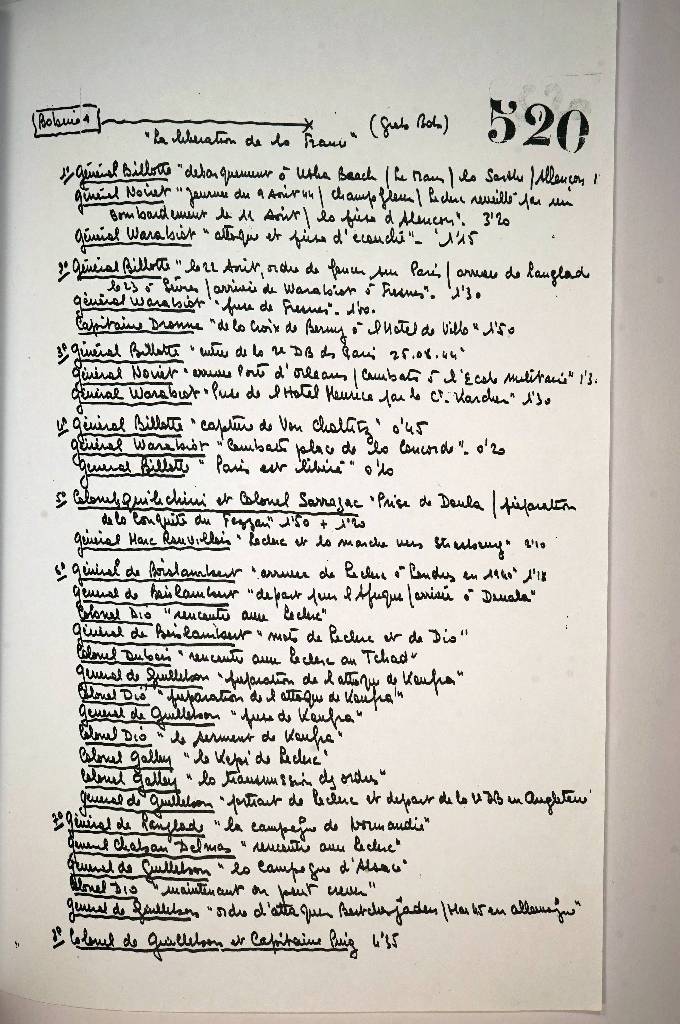 520
Bobine 4
"La libération de la France" (Grets Bob)
1° Général Billotte "debarquement à Utha Beach / Le Mans / la Sarthe / Allençon 1'
Général Noiret "Journée du 9 Août 44 / Champfleur / Leclerc reveillé par un
bombardement le 11 Août / la prise d'Alençon". 3'20
Général Warabiot "attaque et prise d'ecouché"- 1'15
2° Général Billotte "le 22 Août, ordre de foncer sur Paris / arrivée de Langlade
le 23 à / arrivée de Warabiot à Fresnes"- 1'30
Général Warabiot "prise de Fresnes"-
Capitaine Dronne "de la Croix de Berny à l'Hotel de Ville" 1'50
3° Général Billotte "entrée de la 2e DB ds Paris 25.08.44"
Général Noiret "arrivée Porte d'Orleans / Combats à l'Ecole Militaire" 1'3.
Général Warabiot "Prise de l'Hotel Meurice par le Ct. Karcher" 1'30
4° Général Billotte "capture de Von Choltitz" 0'45
Général Warabiot "Combats place de la Concorde"- 0'20
General Billotte "Paris est libéré" 0'10
5° Colonel Quilichini et Colonel Sarrazac "Prise de Doula / préparation
de la Conquête du Fezzan" 1'50 + 1'20
Général Marc Rouvillois "Leclerc et la marche vers Strasbourg" 2'10
6° Général de Boislambert "arrivée de Leclerc à Londres en 1940" 1'18
General de Boislambert "depart pour l'Afrique / arrivée à Douala"
Colonel Dio "rencontre avec Leclerc"
Général de Boislambert "mots de Leclerc et de Dio"
Colonel Dubois "rencontre avec Leclerc au Tchad"
General de Guillebon "préparation de l'attaque de Koufra"
Colonel Dio "préparation de l'attaque de Koufra"
General de Guillebon "prise de Koufra"
Colonel Dio "le serment de Koufra"
Colonel Galley "le Kepi de Leclerc"
Colonel Galley "la transmission ds ordres"
General de Guillebon "portrait de Leclerc et depart de la 2e DB en Angleterre"
7° Général de Langlade "la campagne de Normandie"
General Chaban Delmas "rencontre avec Leclerc"
General de Guillebon "la Campagne d'Alsace"
Colonel Dio "maintenant on peut crever"
General de Guillebon "ordre d'attaquer Bertchesgaden / Mai 45 en allemagne"
8° Colonel de Guillebon et Capitaine Puig 4'35